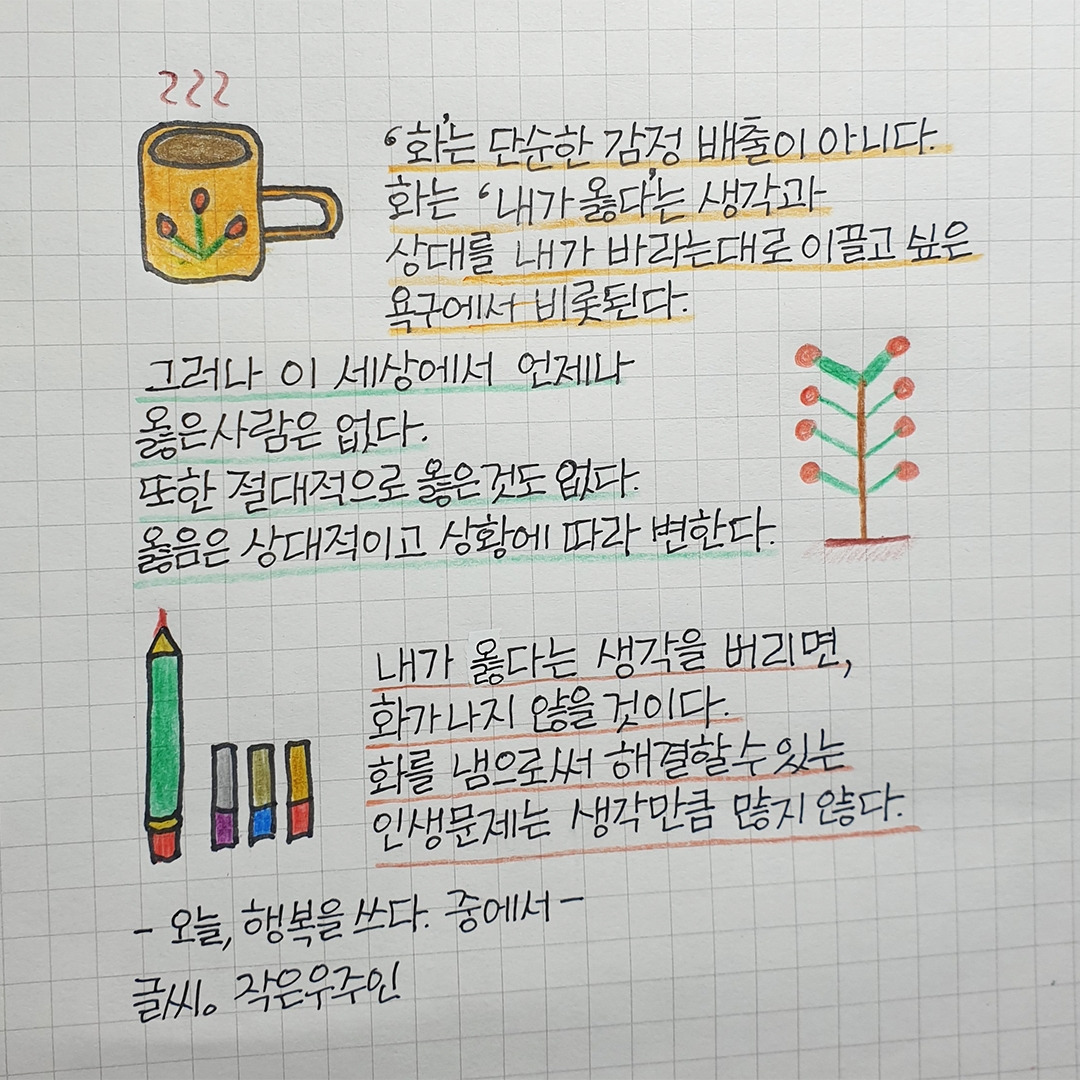 '화'는 단순한 감정 배출이 아니다.
화는 '내가 옳다'는 생각과
상대를 내가 바라는대로 이끌고 싶은
욕구에서 비롯된다.
그러나 이 세상에서 언제나
옳은사람은 없다.
또한 절대적으로 옳은것도 없다.
옳음은 상대적이고 상황에 따라 변한다.
내가 옳다는 생각을 버리면,
화가나지 않을것이다.
화를 냄으로써 해결할수있는
인생문제는 생각만큼 많지 않다.
- 오늘, 행복을 쓰다. 중에서 -
글씨. 작은우주인